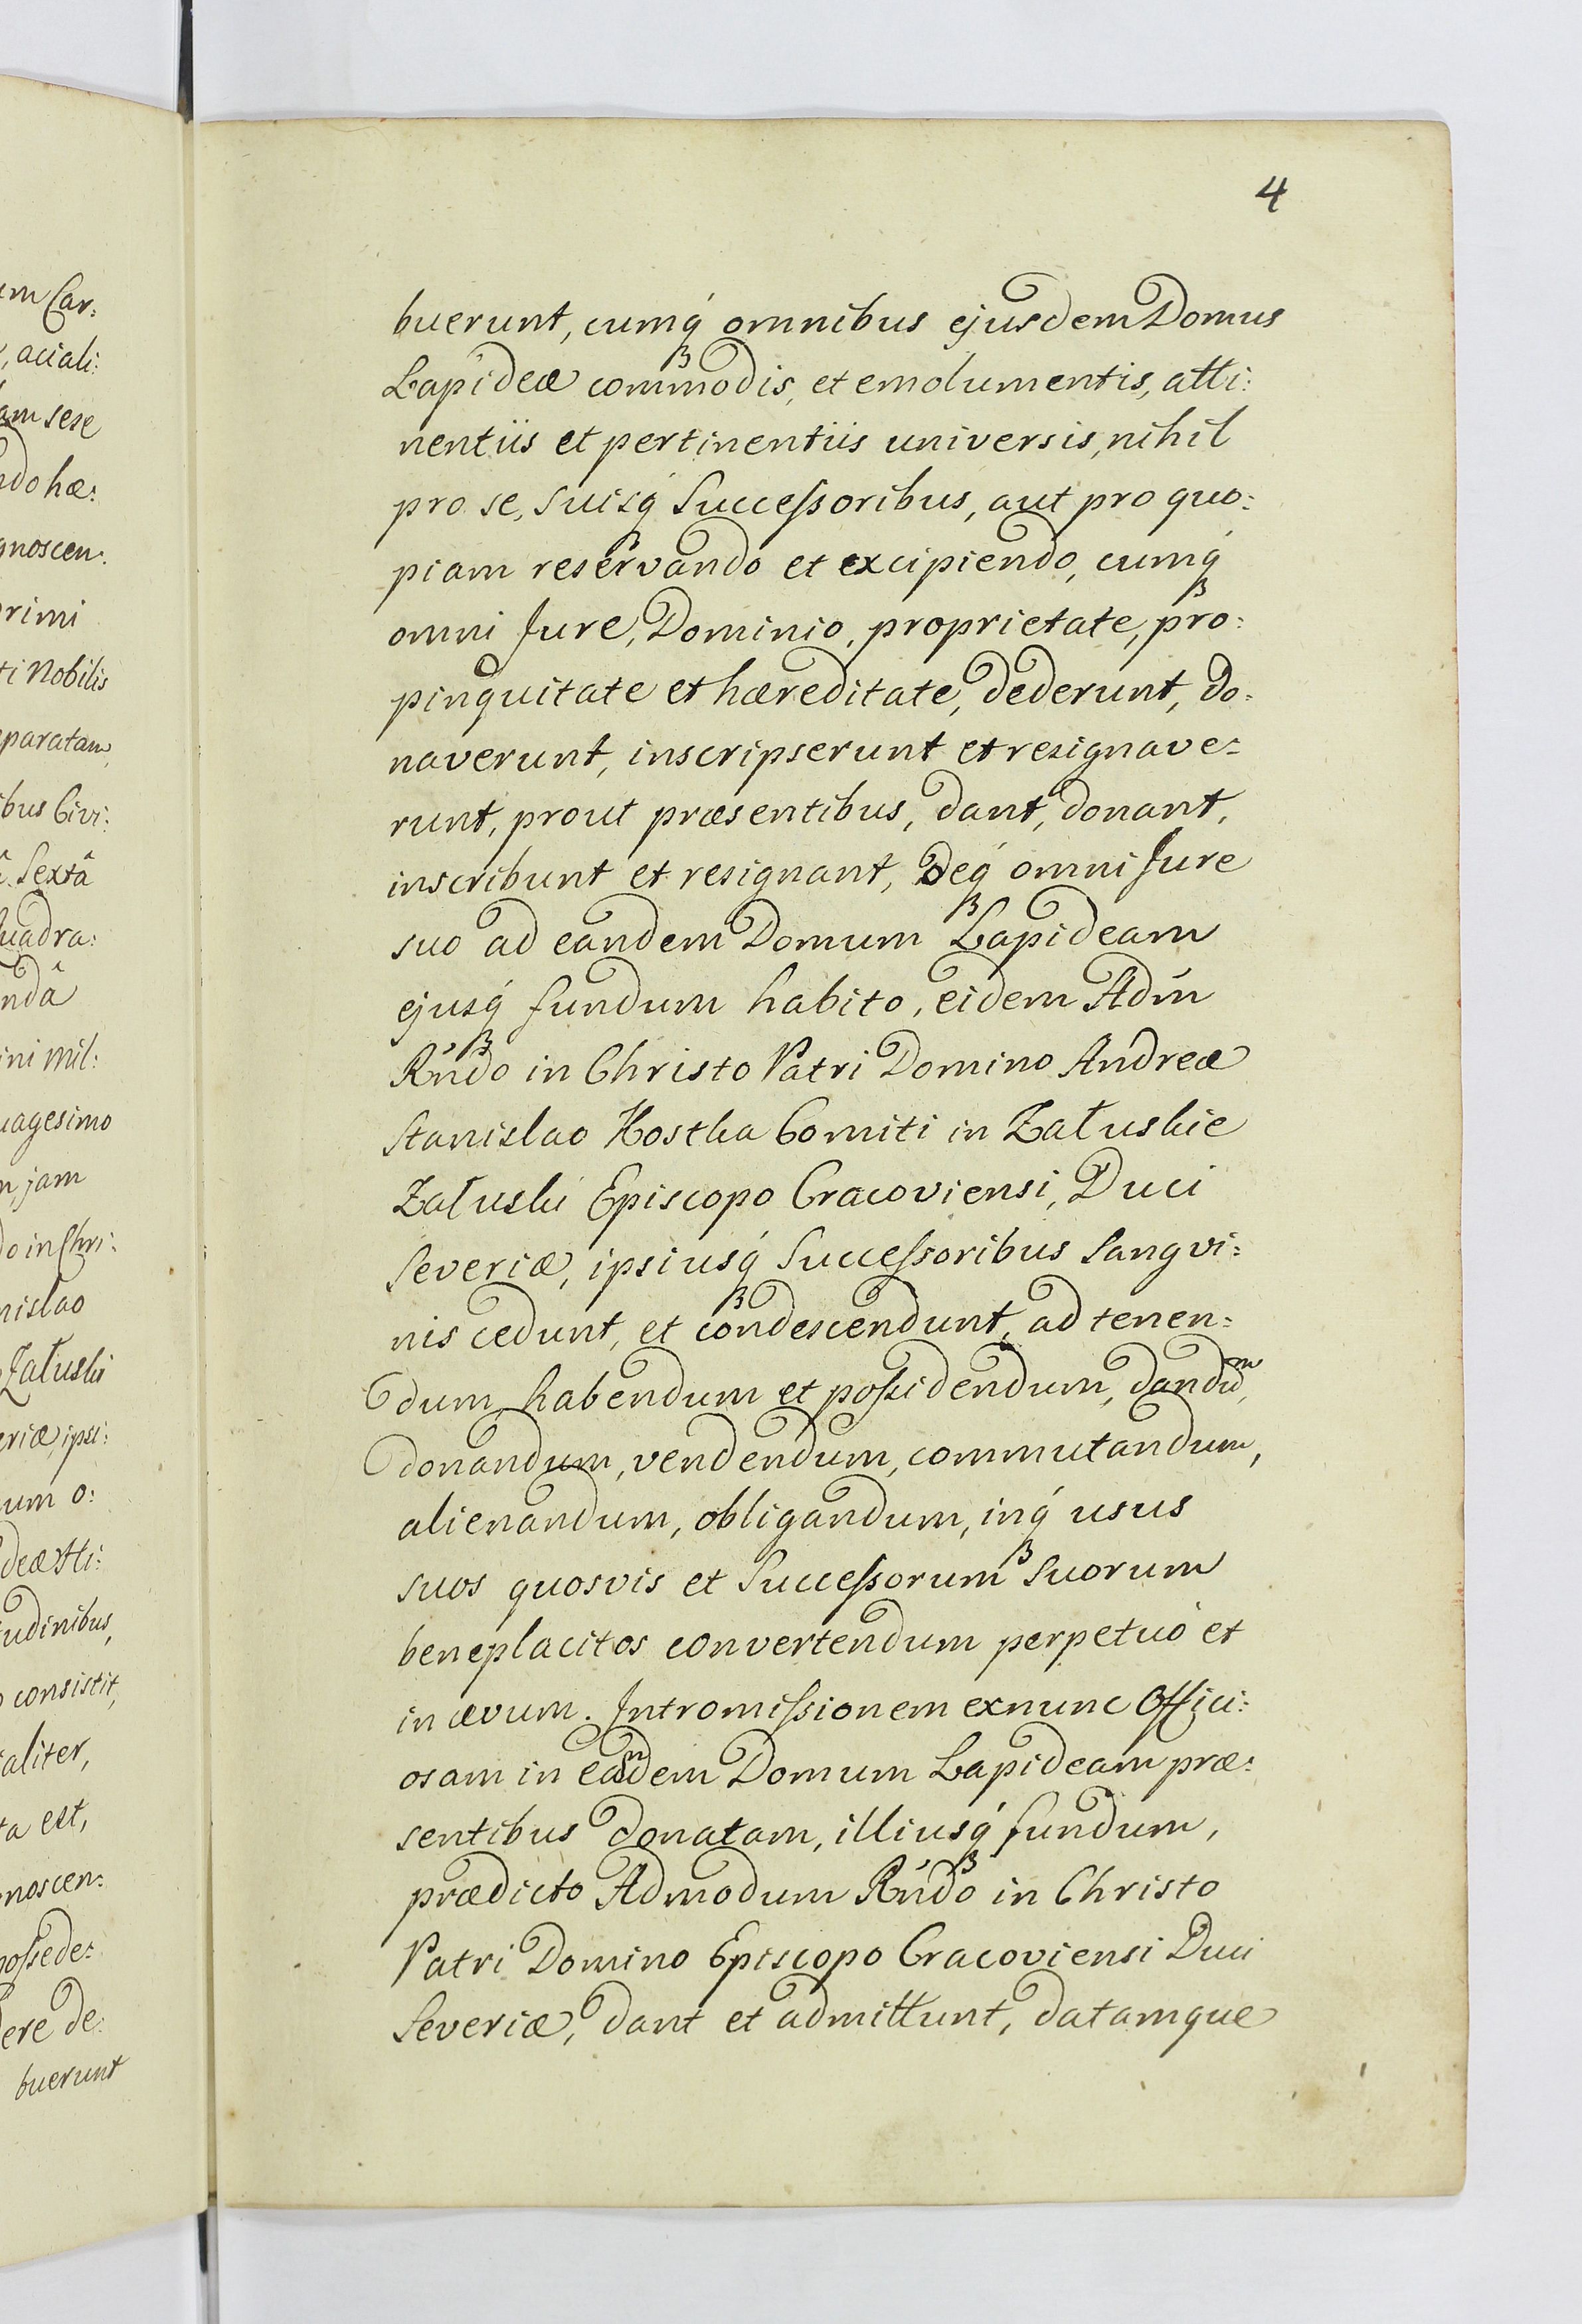 4
buerunt, cumq́ omnibus ejusdem Domus
Lapideæ commodis, et emolumentis, atti:
nentiis et pertinentiis universis, nihil
pro se, suisq́ Succeſsoribus, aut pro quo:
piam reservando et excipiendo, cumq́
omni Jure, Dominio, proprietate, pro:
pinquitate et hæreditate, dederunt, do:
naverunt, inscripserunt et resignave:
runt, prout præsentibus, dant, donant,
inscribunt et resignant, Deq́ omni Jure
suo ad eandem Domum Lapideam
ejusq́ fundum habito, eidem Adm̃
Rńdo in Christo Patri Domino Andreæ
Stanislao Kostka Comiti in Załuskie
Załuski Episcopo Cracoviensi, Duci
Severiæ, ipsiusq́ Succeſsoribus Sangvi:
nis cedunt, et condescendunt, ad tenen:
dum, habendum et poſsidendum, dandũm,
donandum, vendendum, commutandum,
alienandum, obligandum, inq́ usus
suos quosvis et Succeſsorum Suorum
beneplacitos convertendum perpetuò et
in ævum. Intromiſsionem exnunc Offici:
osam in eandem Domum Lapideam præ:
sentibus donatam, illiusq́ fundum,
prædicto Admodum Rńdo in Christo
Patri Domino Episcopo Cracoviensi Duci
Severiæ, dant et admittunt, datamque
um Car:
aciali:
am sese
hæ:
gnoscen:
primi
ti Nobilis
paratam,
ibus Civi:
Sextâ
quadra:
ndâ
ini Mil:
uagesimo
jam
in Chri:
nislao
Załuski
eriæ, ipsi:
um o:
deæ Atti:
udinibus,
consistit,
aliter,
ta est,
noscen:
poſsede:
ere de:
buerunt